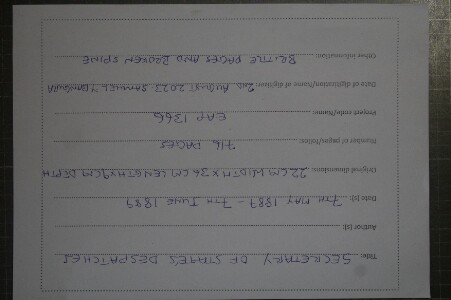 Title: SECRETARY OF STATE'S DESPATCHES
Author (s):
Date (s): 7TH MAY 1889 - 7TH JUNE 1889
Original dimensions: 22CM WIDTH X 36CM LENGTH X 9CM DEPTH
Number of pages/folios: 716 PAGES
Project code/Name: EAP 1366
Date of digitisation/Name of digitiser: 2ND AUGUST 2023 SAMUEL
Other information: BRITTLE PAGES AND BROKEN SPINE